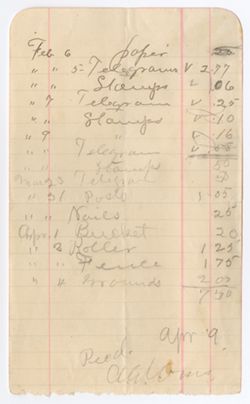 Feb 6 paper 20
" " 5- Telegrams √ 2.77
" " Stamps √ .06
" 7 Telegram √ .25
" " Stamps √ .10
" 9 " √ .16
" " Telegram √
" " Stamps
23 Telegram 50
" 31 Posts .05
" " Nails 25
Apr. 1 Bucket 20
" 2 Roller 1 25
" " Fence 1 75
" " 4 Grounds 2 00
7 30
Apr 9
Recd.